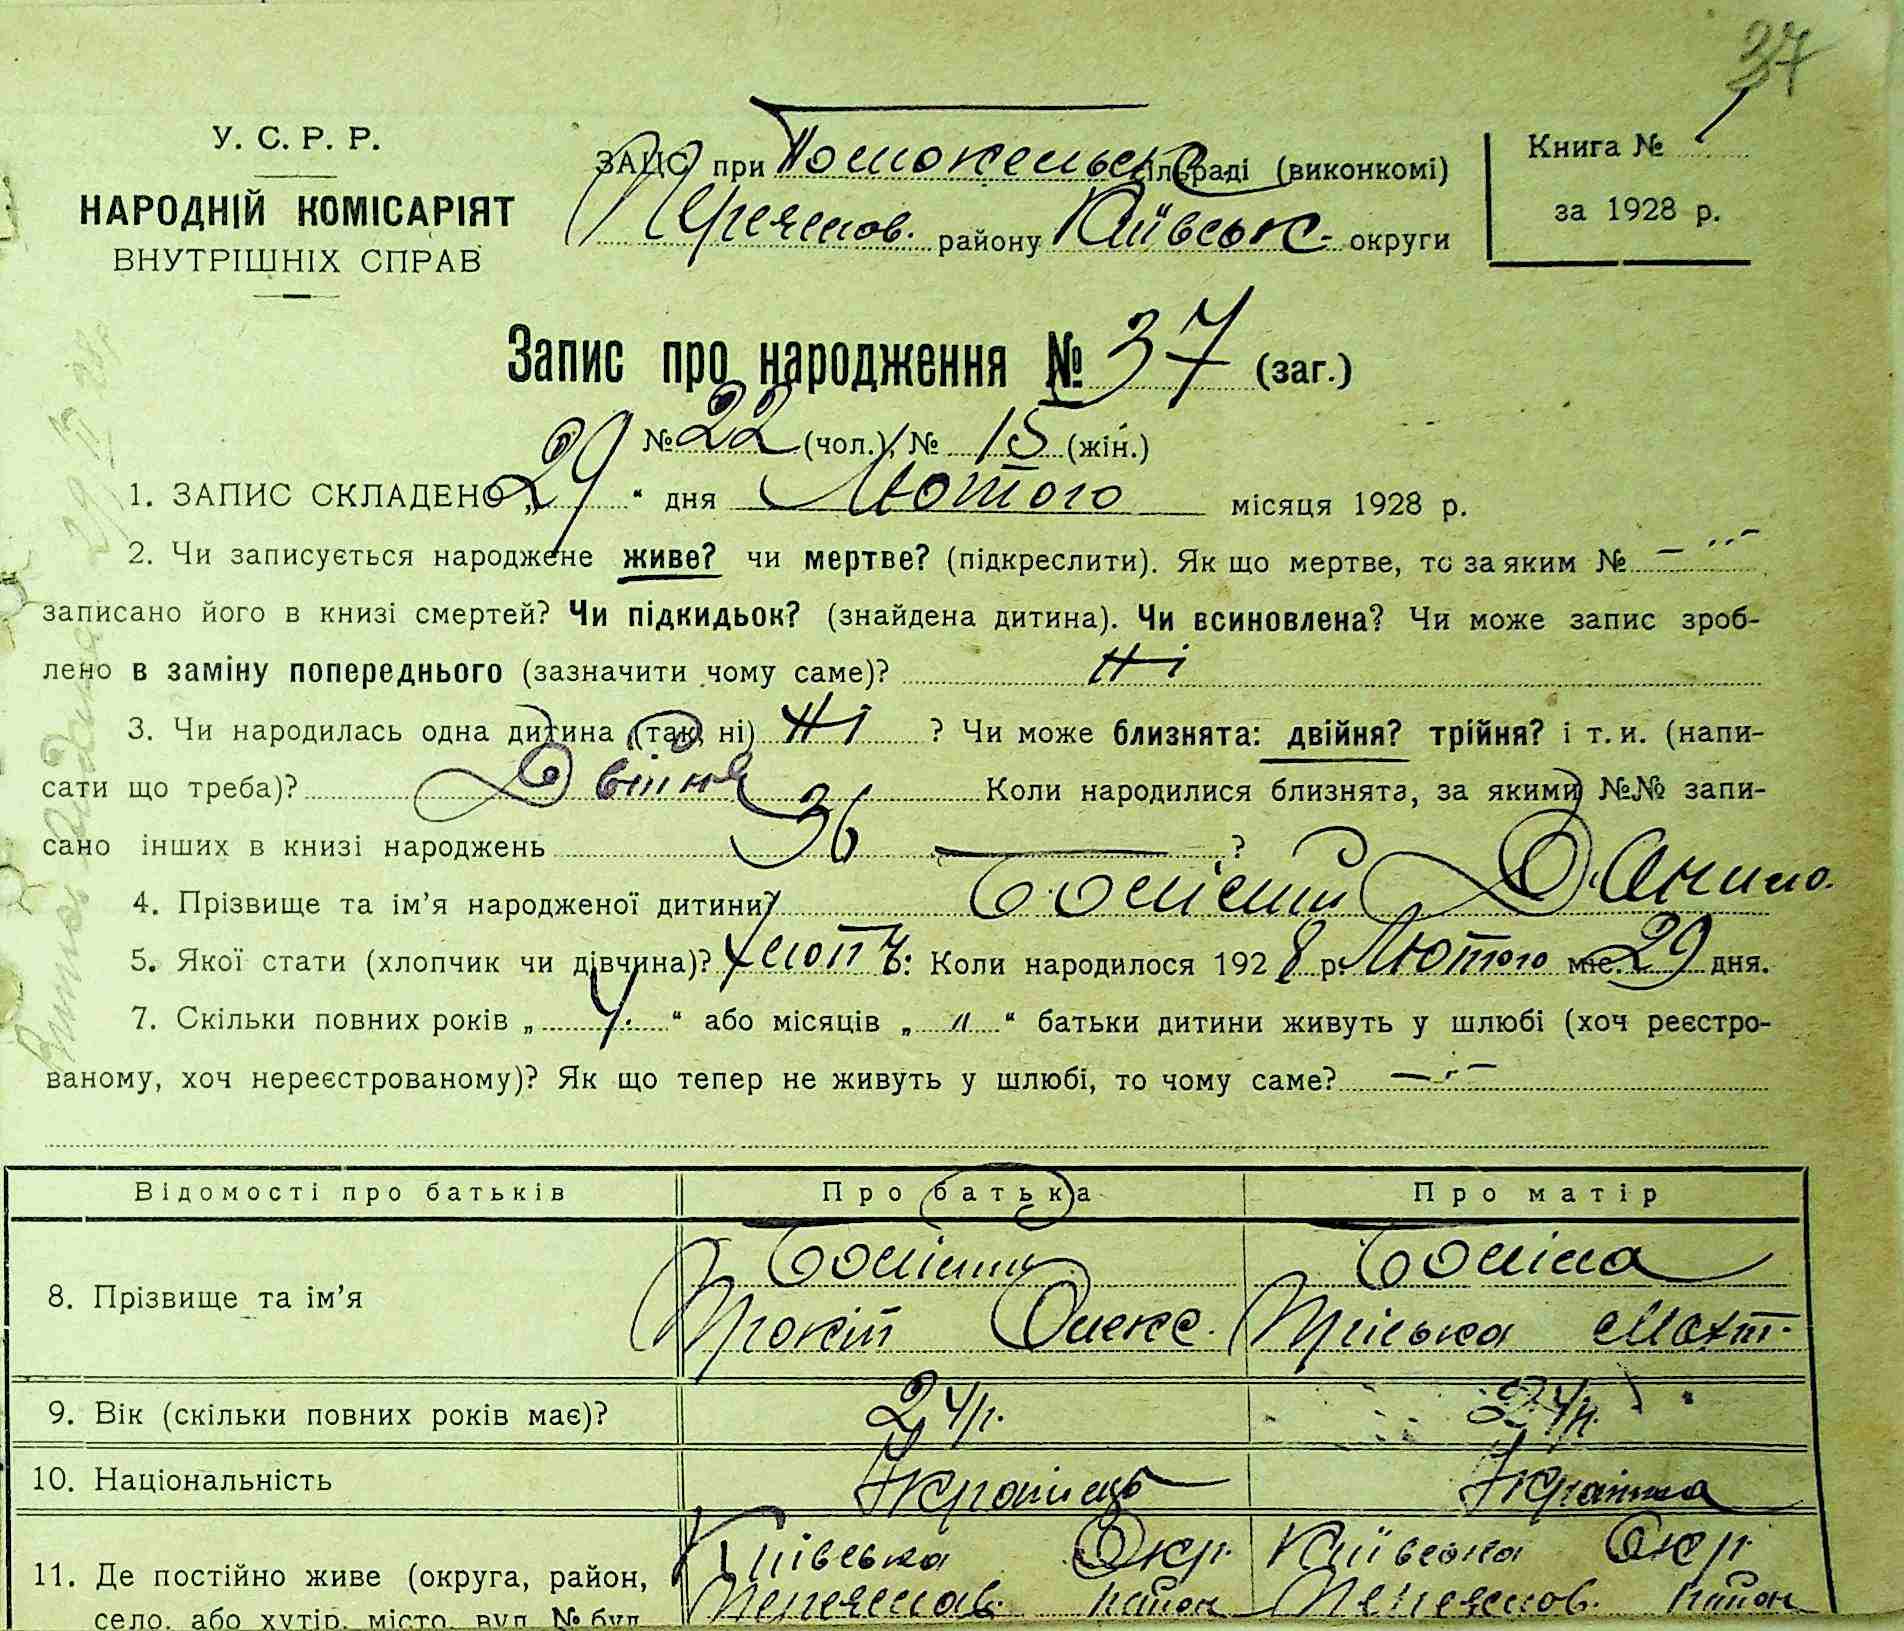 37
У. С. Р. Р.
НАРОДНІЙ КОМІСАРІЯТ
ВНУТРІШНІХ СПРАВ
ЗАЦС при Помокельськ сільраді (виконкомі)
Переяслов. району Київськ. округи
Книга № 1
за 1928 р.
Запис про народження № 37 (заг.)
№ 22 (чол.), № 15 (жін.)
1. ЗАПИС СКЛАДЕНО „29“ дня Лютого місяця 1928 р.
2. Чи записується народжене живе? чи мертве? (підкреслити). Як що мертве, то за яким №
записано його в книзі смертей? Чи підкидьок? (знайдена дитина). Чи всиновлена? Чи може запис зроб-
лено в заміну попереднього (зазначити чому саме)? Ні
3. Чи народилась одна дитина (так, ні) Ні ? Чи може близнята: двійня? трійня? і т. и. (напи-
сати що треба)? Двійня Коли народилися близнята, за якими №№ запи-
сано інших в книзі народжень 36 ?
4. Прізвище та ім’я народженої дитини? Данило.
5. Якої стати (хлопчик чи дівчина)? Хлопч: Коли народилося 1928 р. Лютого міс. 29 дня.
7. Скільки повних років „ 4. “ або місяців „ „ “ батьки дитини живуть у шлюбі (хоч реєстро-
ваному, хоч нереєстрованому)? Як що тепер не живуть у шлюбі, то чому саме?
Відомості про батьків Про батька Про матір
8. Прізвище та ім’я
Прокіп Олекс. Пріська Мат.
9. Вік (скільки повних років має)? 24 р. 24 р.
10. Національність Українець Українка
11. Де постійно живе (округа, район, Київська Окр. Київська Окр.
село, або хутір, місто, вул. № буд. Переяслав. район Переяслов. район